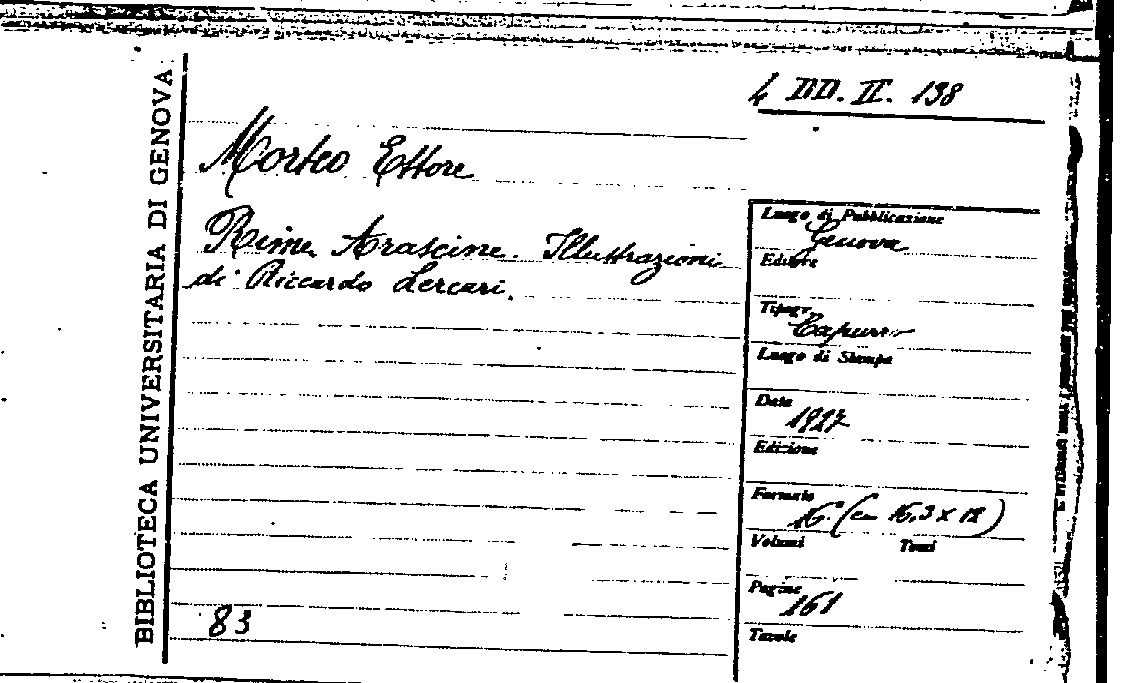 BIBLIOTECA UNIVERSITARIA DI GENOVA
4 DD. II. 138
Morteo Ettore
Rime Arascine. Illustrazioni
di Riccardo Lercari.
83
Luogo di Pubblicazione
Genova
Editore
Tipogr.
Capurro
Luogo di Stampa
Data
1927
Edizione
Formato
16° (cm 16,3 x 12)
Volumi Tomi
Pagine
161
Tavole